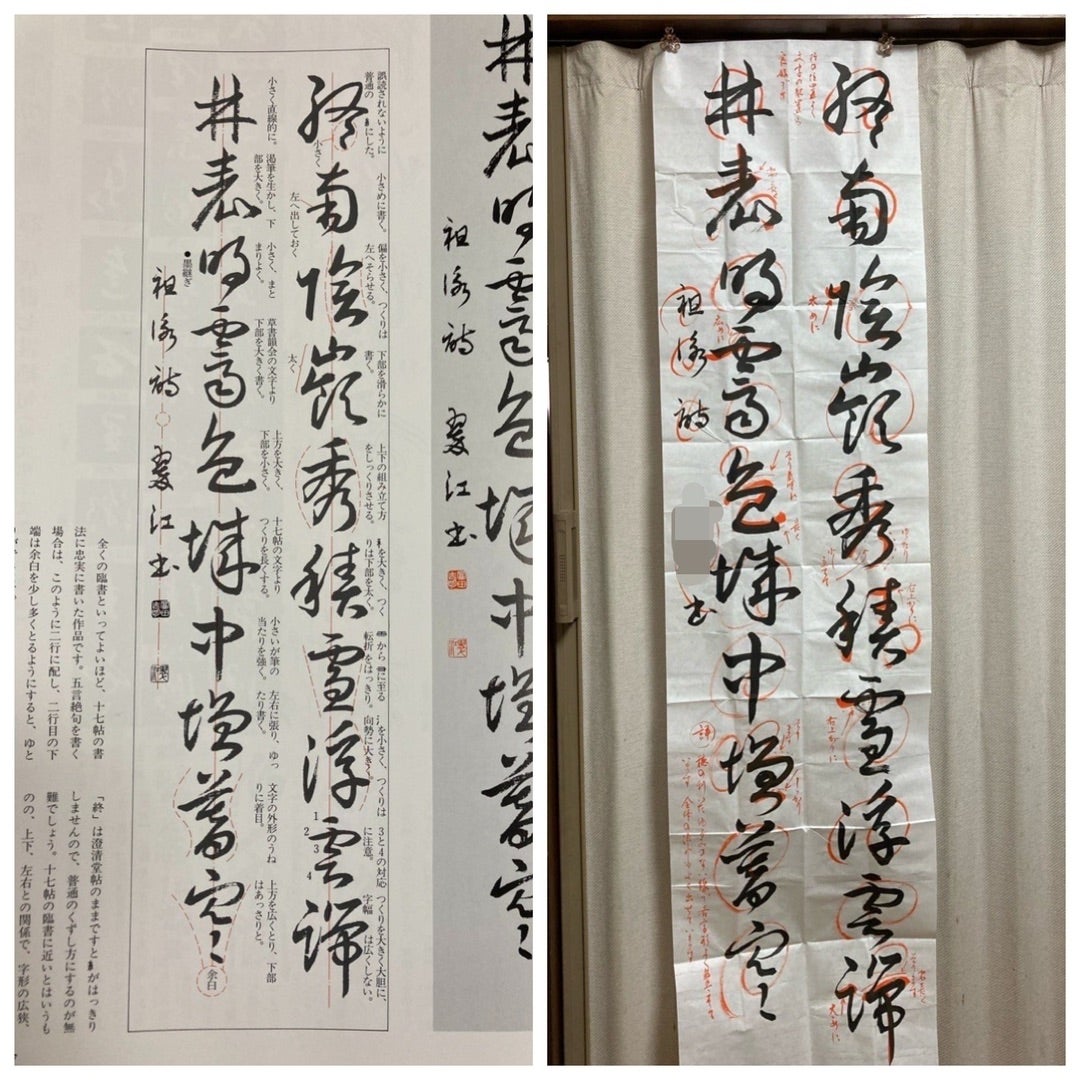 林表明霽色城中増暮寒
祖詠詩 翠江書
誤読されないように
普通の にした。
小さく
小さめに書く。
左へ出しておく
偏を小さく、つくりは
左へそらせる。
下部を滑らかに
書く。
太く
上下の組み立て方
をしっくりさせる。
を大きく、つく
りは下部を太く。
から に至る
転折をはっきり。
氵を小さく、つくりは
向勢に大きく。
3と4の対応
に注意。
つくりを大きく大胆に、
字幅 は広くしない。
終南陰嶺秀積雪浮雲端
1 2 3 4
小さく直線的に。
渇筆を生かし、下
部を大きく。
小さく、まと
まりよく。
草書韻会の文字より
下部を大きく書く。
上方を大きく、
下部を小さく。
十七帖の文字より
つくりを長くする。
小さいが筆の
当たりを強く。
左右に張り、ゆっ
たり書く。
文字の外形のうね
りに着目。
上方を広くとり、下部
はあっさりと。
林表明霽色城中増暮寒
余白
●墨継ぎ
祖詠詩 翠江書
全くの臨書といってよいほど、十七帖の書
法に忠実に書いた作品です。五言絶句を書く
場合は、このように二行に配し、二行目の下
端は余白を少し多くとるようにすると、ゆと
「終」は澄清堂帖のままですと がはっきり
しませんので、普通のくずし方にするのが無
難でしょう。十七帖の臨書に近いとはいうも
のの、上下、左右との関係で、字形の広狭、
終南陰嶺秀積雪浮雲端
太めに
右上がりに
右上がりに
太めに
林表明霽色城中増暮寒
広めに
祖詠詩 書